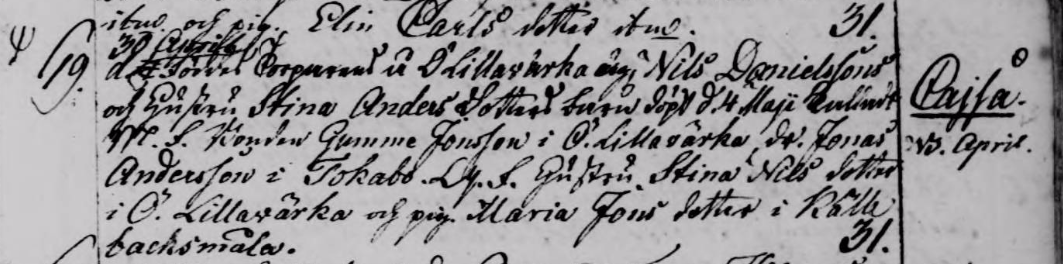 itus. och pig. Elin Carls dotter itus. 31.
19. 30 Aprilis
d. Corpurens ä Ö Lillavärka äg. Nils Danielssons
och Hustru Stina Anders Dotters barn döpt d. 4 Maji Cajsa.
M. S. Bonden Gumme Jonsson i Ö. Lillavärka, dr. Jonas
Andersson i Tokabo. Q. S. Hustru Stina Nils dotter
i Ö. Lillavärka och pig. Maria Jons dotter i Käll
backsmåla. 31.
April.